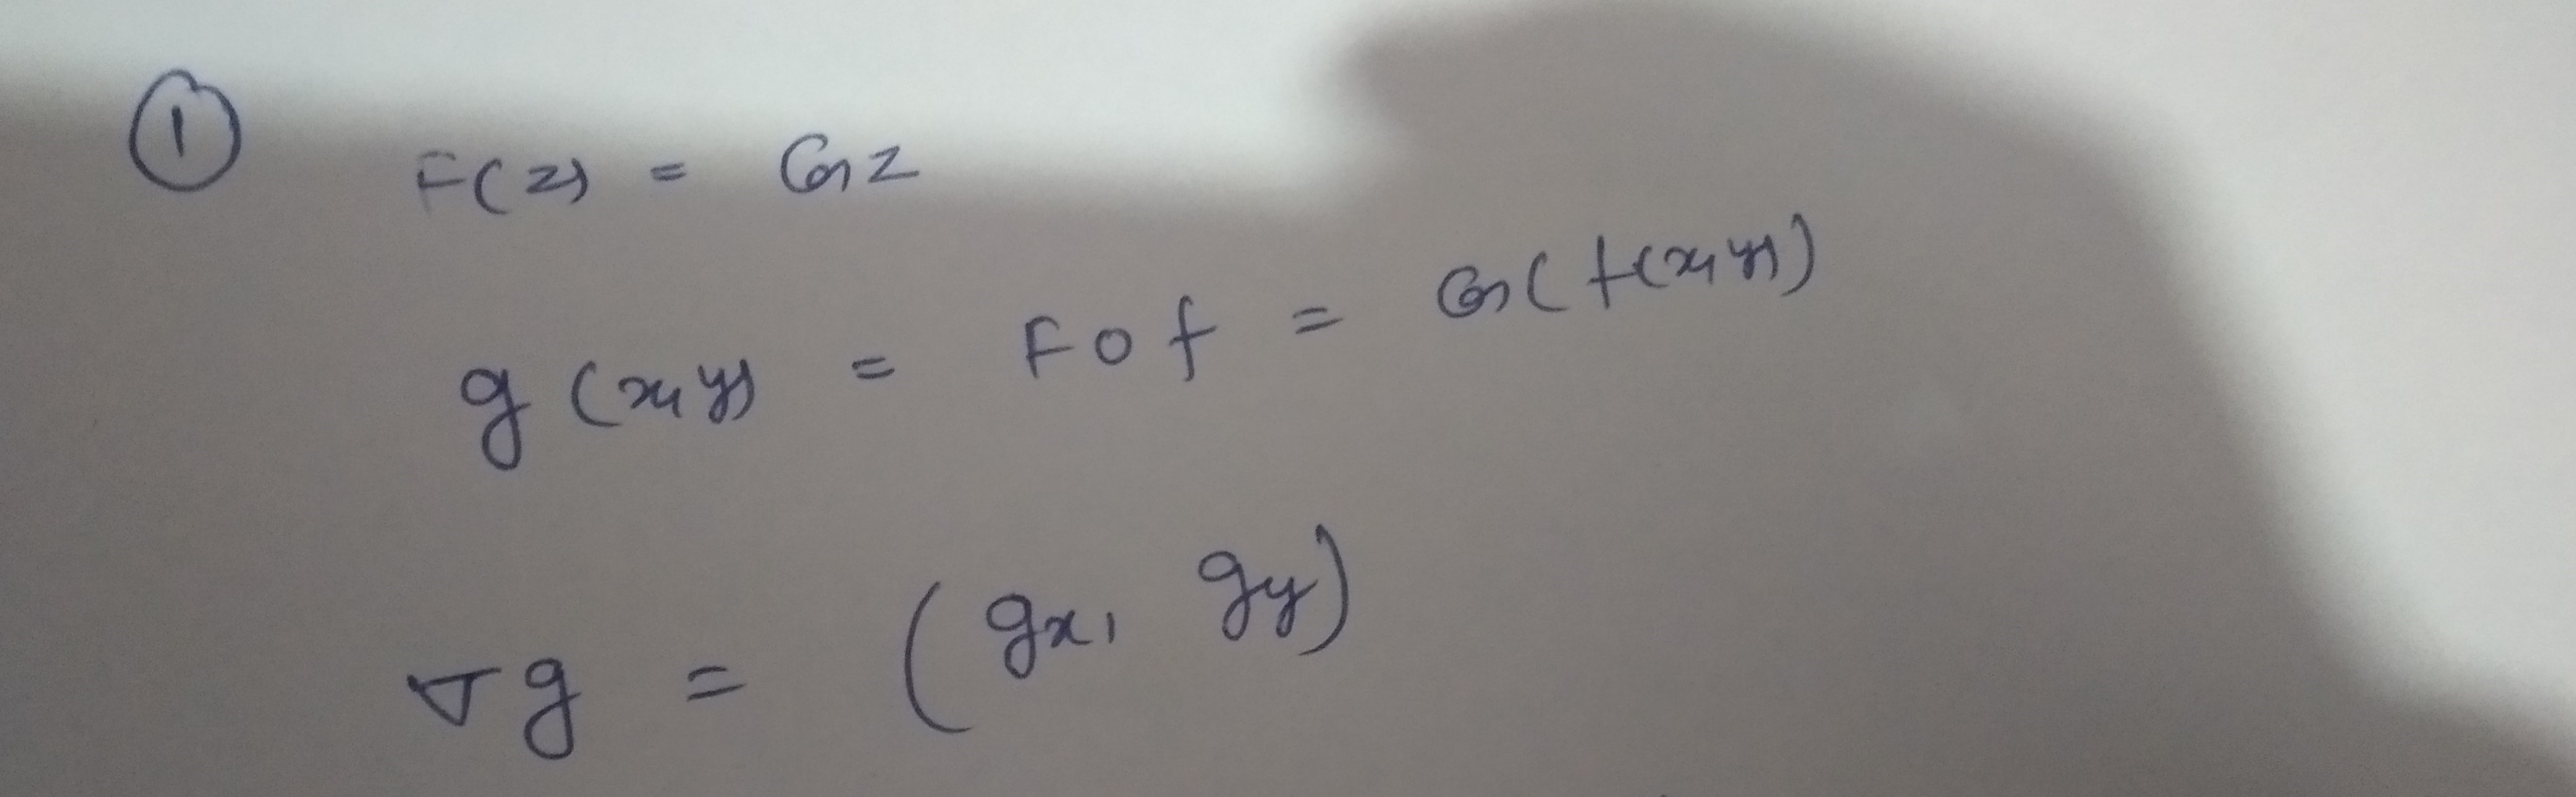 ①
F(z) = Cos z
g(x,y) = F o f = Cos(f(x,y))
∇g = (gx, gy)